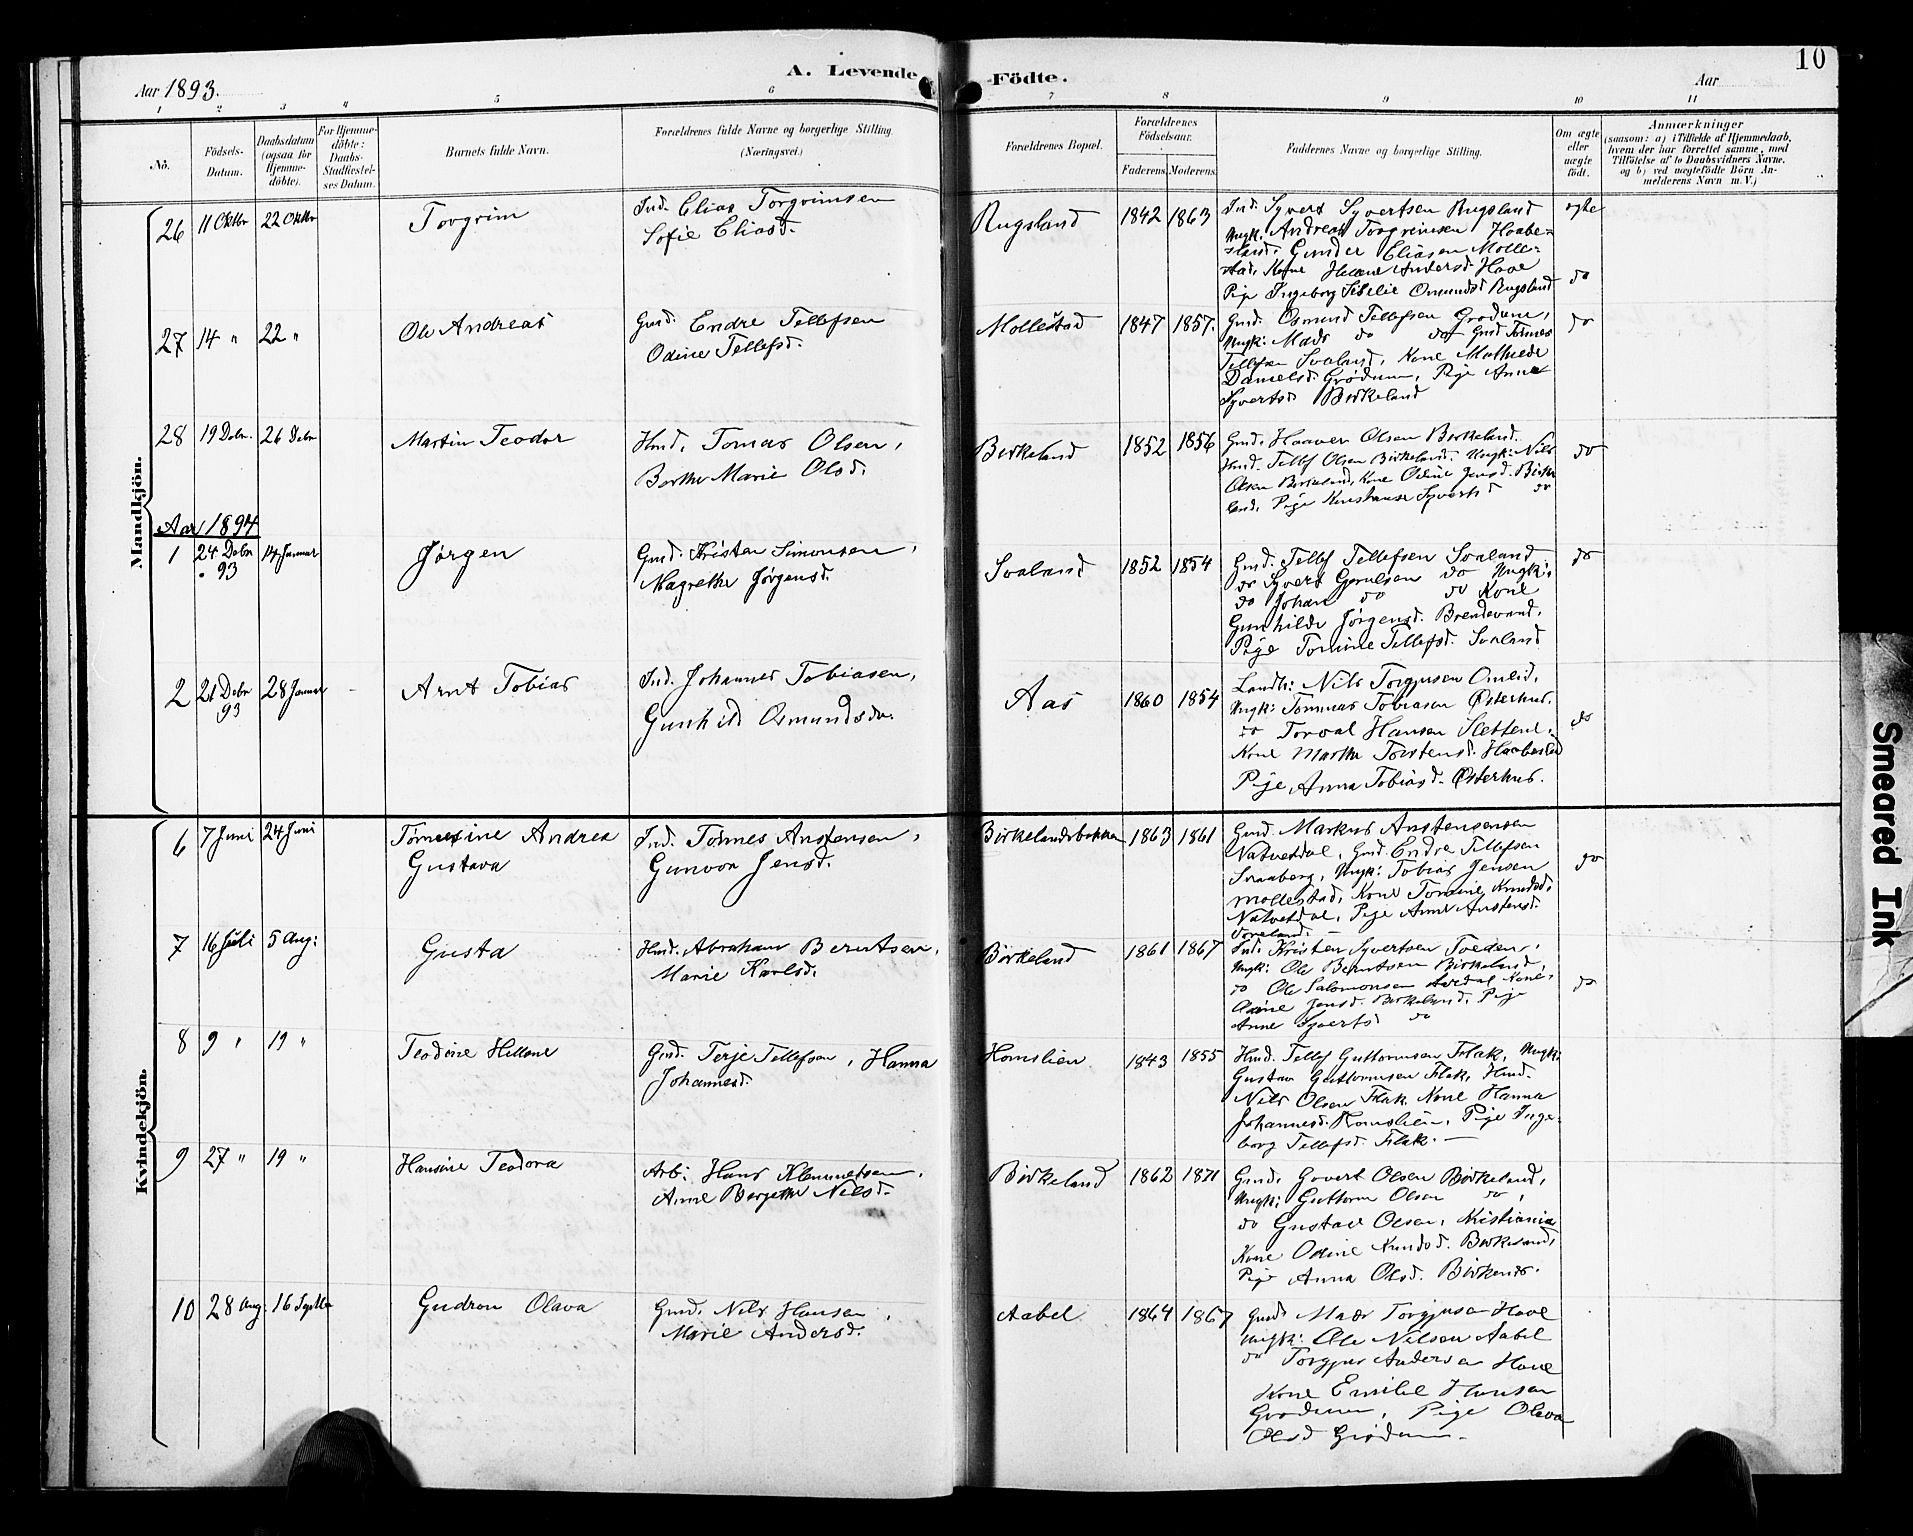 10
A. Levende Födte.
Aar 1893.
Aar
1 2 3 4 5 6 7 8 9 10 11
No.
Födsels-
Datum.
Daabsdatum
(ogsaa for
Hjemme-
döbte).
For Hjemme-
döbte:
Daabs-
Stadfæstel-
ses Datum.
Barnets fulde Navn.
Forældrenes fulde Navne og borgerlige Stilling.
(Næringsvei.)
Forældrenes Bopæl.
Forældrenes
Födselsaar.
Faderens Moderens.
Faddernes Navne og borgerlige Stilling.
Om ægte
eller
uægte
födt.
Anmærkninger
(saasom: a) i Tilfælde af Hjemmedaab,
hvem der har forrettet samme, med
Tilföielse af to Daabsvidners Navne.
og b) ved uægtefödte Börn An-
melderens Navn m. V.)
Mandkjön.
26 11 Oktbr 22 Oktbr Torgrim
Ind. Elias Torgrimsen
Sofie Eliasd.
Rugsland 1842 1863
Ind. Syvert Syvertsen Rugsland
Ungk. Andreas Torgrimsen Haabe-
stad. Gunder Eliasen Molle-
stad, Kone Helene Andersd. Hove
Pige Ingeborg Sibelie Osmundsd. Rugsland
ægte
do
27 14 " 22 " Ole Andreas
Gmd. Endre Tellefsen
Odine Tellefsd.
Mollestad 1847 1857.
Gmd. Osmund Tellefsen Grødum,
Ungk: Mads do do Gmd Tønnes
Tellefsen Svaland, Kone Mathilde
Danielsd. Grødum, Pige Anne
Syvertsd Birkeland
do
28 19 Debr. 26 Debr Martin Teodor
Hmd. Tomas Olsen,
Berthe Marie Olsd.
Birkeland 1852 1856
Gmd. Haaver Olsen Birkeland.
Hmd. Tellef Olsen Birkeland. Ungk: Nils
Olsen Birkeland, Kone Odine Jensd. Birke
land, Pige Konstanse Syvertsd do
do
Aar 1894
1 24 Debr 93 14 Januar Jørgen
Gmd. Kristen Simonsen,
Magrethe Jørgensd.
Svaland 1852 1854
Gmd. Tellef Tellefsen Svaland
do Syvert do Ungk:
do Johan do do Kone
Gunhilde Jørgensd. Brendevand,
Pige Tomine Tellefsd. Svaland
do
2 21 Debr 93 28 Januar - Arnt Tobias
Ind. Johannes Tobiasen,
Gunhild Osmundsdr.
Aas 1860 1854
Landh: Nils Torgjusen Omlid,
Ungk: Tommas Tobiasen Østerhus.
do Torval Hansen Slettene,
Kone Marthe Torstensd. Haabestad
Pige Anna Tobiasd. Østerhus.
do
Kvindekjön.
6 7 Juni 24 Juni Tønnesine Andrea
Gustava
Ind. Tønnes Anstensen,
Gunvor Jensd.
Birkelandsbakken 1863 1861
Gmd. Markus Anstensensen
Natvetdal, Gmd. Endre Tellefsen
Snaaberg, Ungk: Tobias Jensen
Mollestad, Kone Tomine Knudsd.
Natvetdal, Pige Anne Anstensd.
do
7 16 Juli 5 Aug: Gusta
Hmd. Abraham Berntsen,
Marie Karlsd.
Birkeland 1861 1867
Ind. Kristen Syvertsen Tveden,
Ungk: Ole Berntsen Birkeland,
do Ole Salomonsen Aardal Kone,
Odine Jensd. Birkeland, Pige
Anne Syvertsd do
do
8 9 " 19 " Teodine Hellene
Gmd. Terje Tellefsen, Hanna
Johannesd.
Homslien 1843 1855
Hmd. Tellef Guttormsen Flak, Ungk:
Gustav Guttormsen Flak, Hmd.
Nils Olsen Flak Kone Hanna
Johannesd. Homslien, Pige Inge-
borg Tellefsd. Flak. —
9 27 " 19 " Hansine Teodora
Arb: Hans Klemmetsen,
Anne Bergethe Nilsd.
Birkeland 1862 1871
Gmd. Govert Olsen Birkeland,
Ungk: Guttorm Olsen do,
do Gustav Olsen, Kristiania
Kone Odine Knudsd. Birkeland,
Pige Anna Olsd. Birkenes.
10 28 Aug. 16 Septbr Gudron Olava
Gmd. Nils Hansen,
Marie Andersd.
Aabel 1864 1867
Gmd. Mads Torgjusen Hove
Ungk: Ole Nilsen Aabel
do Torgjus Andersen Hove
Kone Emilie Hansen
Grødum, Pige Olava
Olsd Grødum.
Smeared Ink